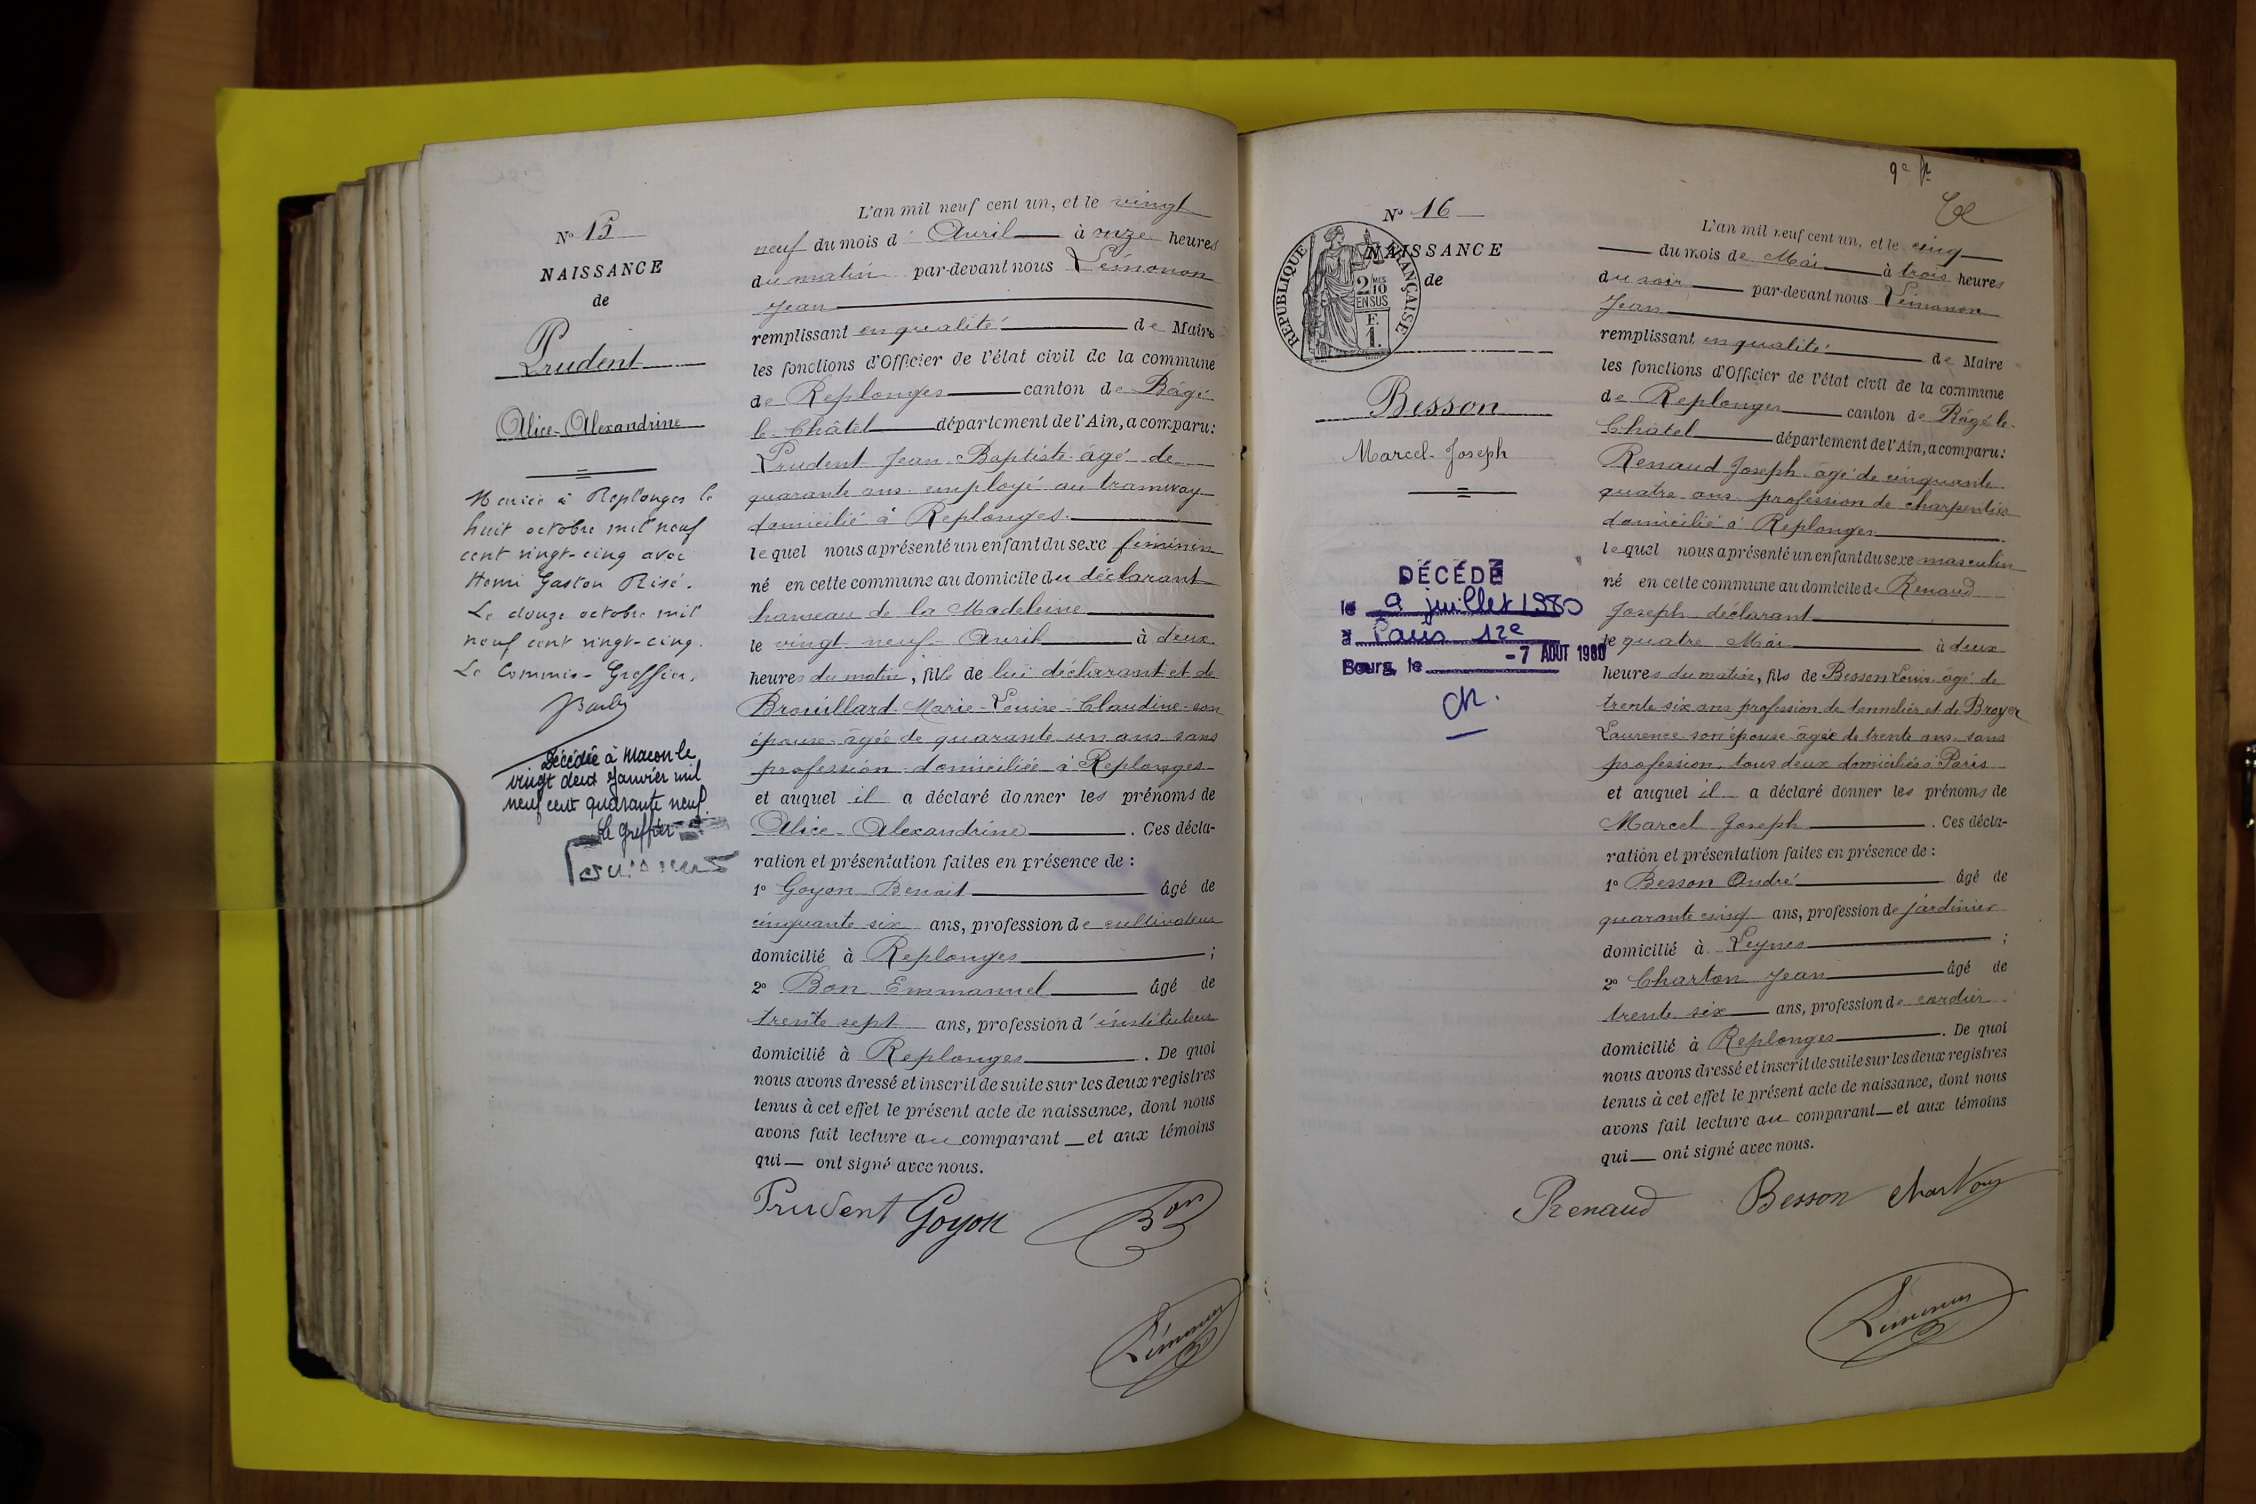 N° 15
NAISSANCE
de
Prudent
Alice-Alexandrine
Mariée à Replonges le
huit octobre mil neuf
cent vingt-cinq avec
Henri Gaston Risé.
Le douze octobre mil
neuf cent vingt-cinq.
Le Commis-Greffier,
Décédée à Macon le
vingt deux Janvier mil
neuf cent quarante neuf.
Le Greffier
L'an mil neuf cent un, et le vingt
neuf du mois d' Avril à onze heures
du matin par-devant nous Lémonon
Jean
remplissant en qualité de Maire
les fonctions d'Officier de l'état civil de la commune
de Replonges canton de Bâgé
le Châtel département de l'Ain, a comparu:
Prudent Jean-Baptiste âgé de
quarante ans employé au tramway
domicilié à Replonges.
lequel nous a présenté un enfant du sexe féminin
né en cette commune au domicile du déclarant
hameau de la Madeleine
le vingt neuf Avril à deux
heures du matin, fille de lui déclarant et de
Brouillard Marie-Louise-Claudine son
épouse âgée de quarante un ans sans
profession domiciliée à Replonges
et auquel il a déclaré donner les prénoms de
Alice-Alexandrine. Ces décla-
ration et présentation faites en présence de :
1° Goyon Benoit âgé de
cinquante six ans, profession de cultivateur
domicilié à Replonges ;
2° Bon Emmanuel âgé de
trente sept ans, profession d'instituteur
domicilié à Replonges. De quoi
nous avons dressé et inscrit de suite sur les deux registres
tenus à cet effet le présent acte de naissance, dont nous
avons fait lecture au comparant et aux témoins
qui ont signé avec nous.
Prudent Goyon Bon
Lémonon
N° 16
NAISSANCE
de
RÉPUBLIQUE FRANÇAISE
2/10 MES
EN SUS
F.
1.
Besson
Marcel-Joseph
DÉCÉDÉ
le 9 juillet 1980
à Paris 12e
Bourg, le -7 AOUT 1980
Ch.
9e
L'an mil neuf cent un, et le cinq
du mois de Mai à trois heures
du soir par-devant nous Lémonon
Jean
remplissant en qualité de Maire
les fonctions d'Officier de l'état civil de la commune
de Replonges canton de Bâgé le
Châtel département de l'Ain, a comparu:
Renaud Joseph âgé de cinquante
quatre ans profession de charpentier
domicilié à Replonges
lequel nous a présenté un enfant du sexe masculin
né en cette commune au domicile de Renaud
Joseph déclarant
le quatre Mai à deux
heures du matin, fils de Besson Louis âgé de
trente six ans profession de tonnelier et de Broyer
Laurence son épouse âgée de trente ans sans
profession tous deux domiciliés à Paris
et auquel il a déclaré donner les prénoms de
Marcel Joseph. Ces décla-
ration et présentation faites en présence de :
1° Besson André âgé de
quarante cinq ans, profession de jardinier
domicilié à Leynes ;
2° Charton Jean âgé de
trente six ans, profession de cordier
domicilié à Replonges. De quoi
nous avons dressé et inscrit de suite sur les deux registres
tenus à cet effet le présent acte de naissance, dont nous
avons fait lecture au comparant et aux témoins
qui ont signé avec nous.
Renaud Besson Charton
Lémonon